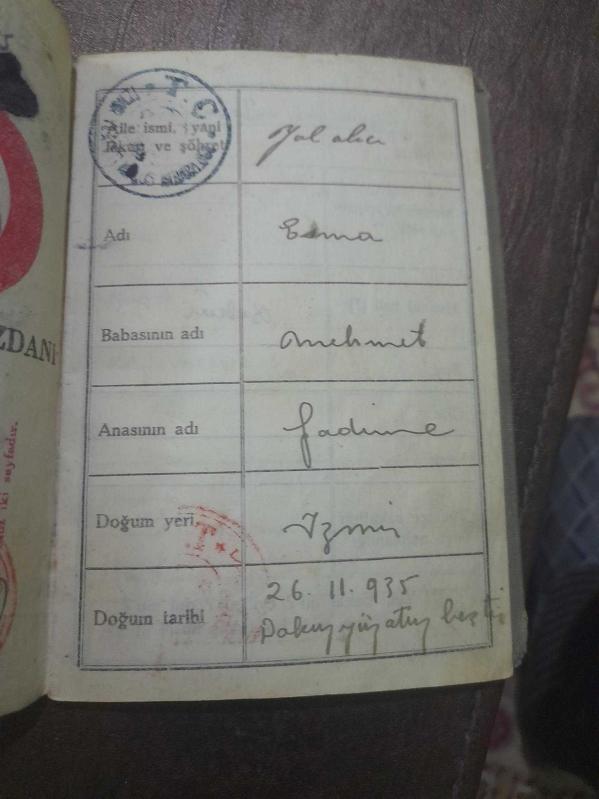 T. C.
Aile ismi, yani
lâkap ve şöhret
Yal alıcı
Adı
Esma
Babasının adı
Mehmet
Anasının adı
Fadime
Doğum yeri
İzmir
Doğum tarihi
26. 11. 935
Dokuzyüzotuz beştir
ZDANI
iki sayfadır.